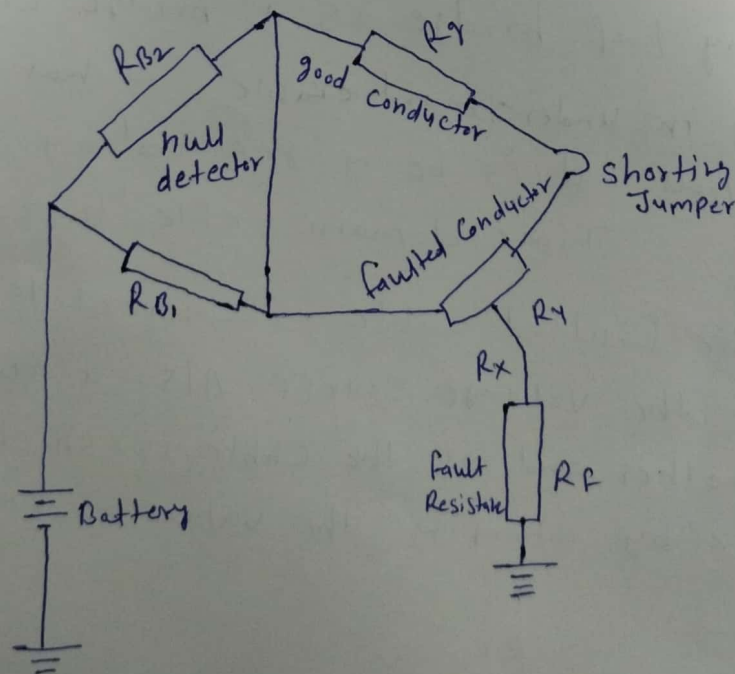 RB2
Rg
good
Conductor
null
detector
Shorting
Jumper
faulted Conductor
RB1
RY
RX
Battery
fault
Resistance
RF